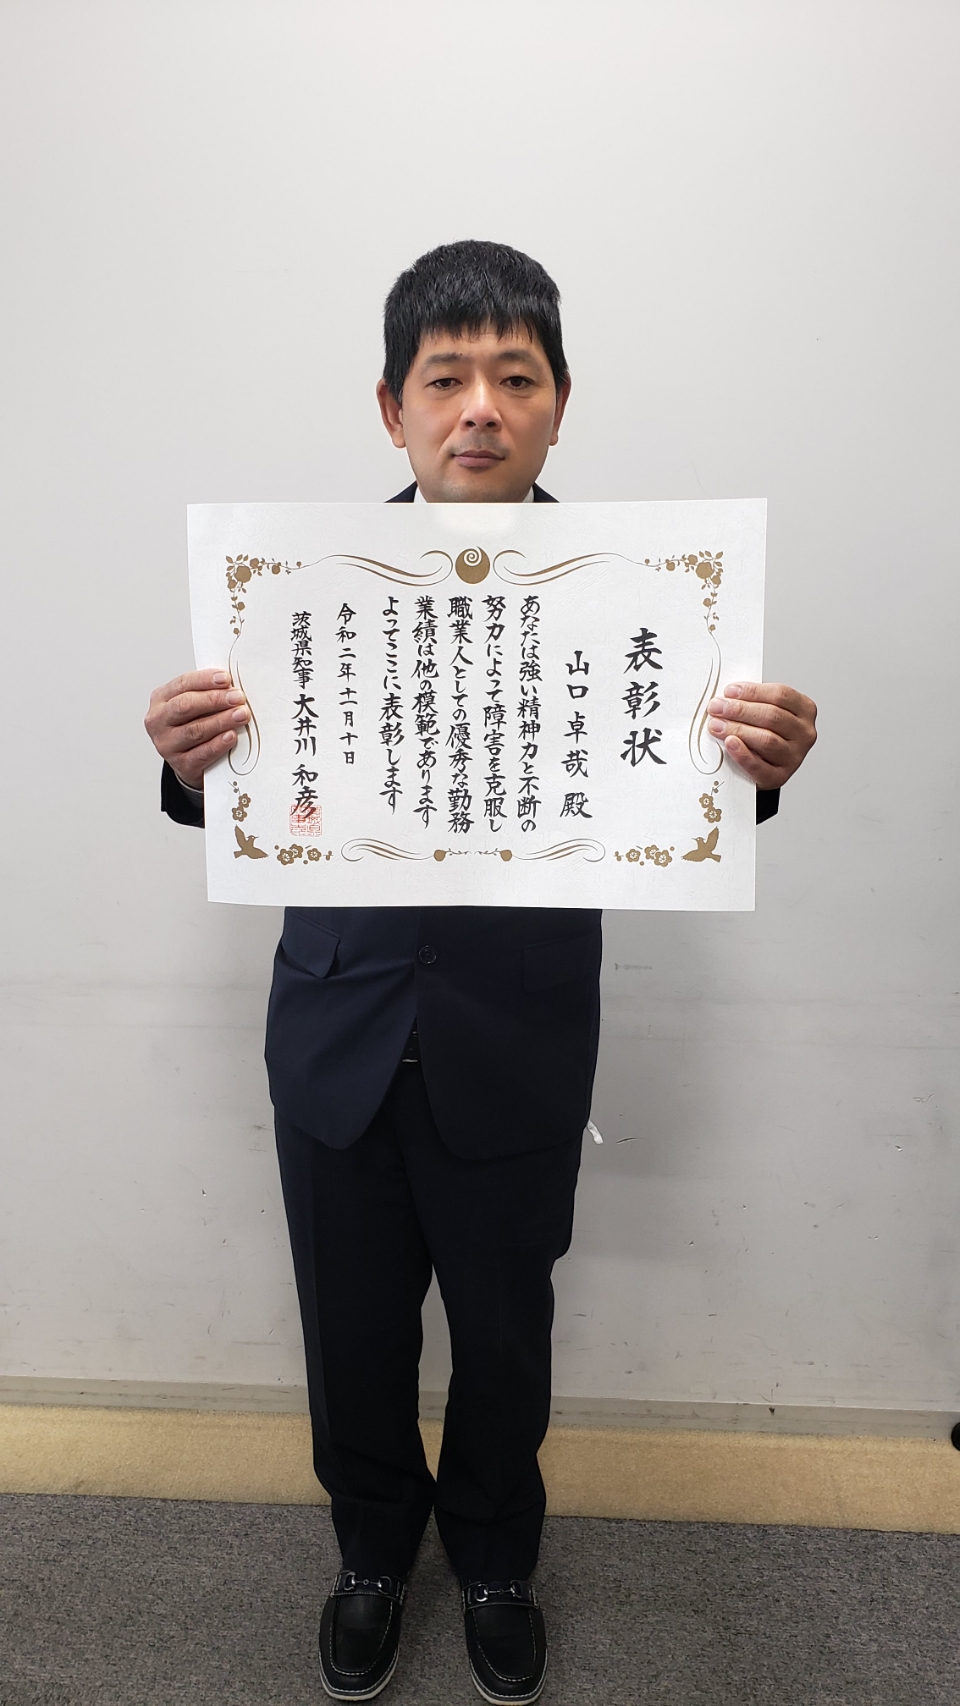 表彰状
山口卓哉殿
あなたは強い精神力と不断の
努力によって障害を克服し
職業人としての優秀な勤務
業績は他の模範であります
よってここに表彰します
令和二年十一月十日
茨城県知事 大井川和彦